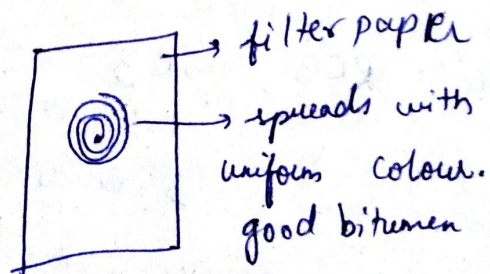 filter paper
spreads with
uniform colour.
good bitumen